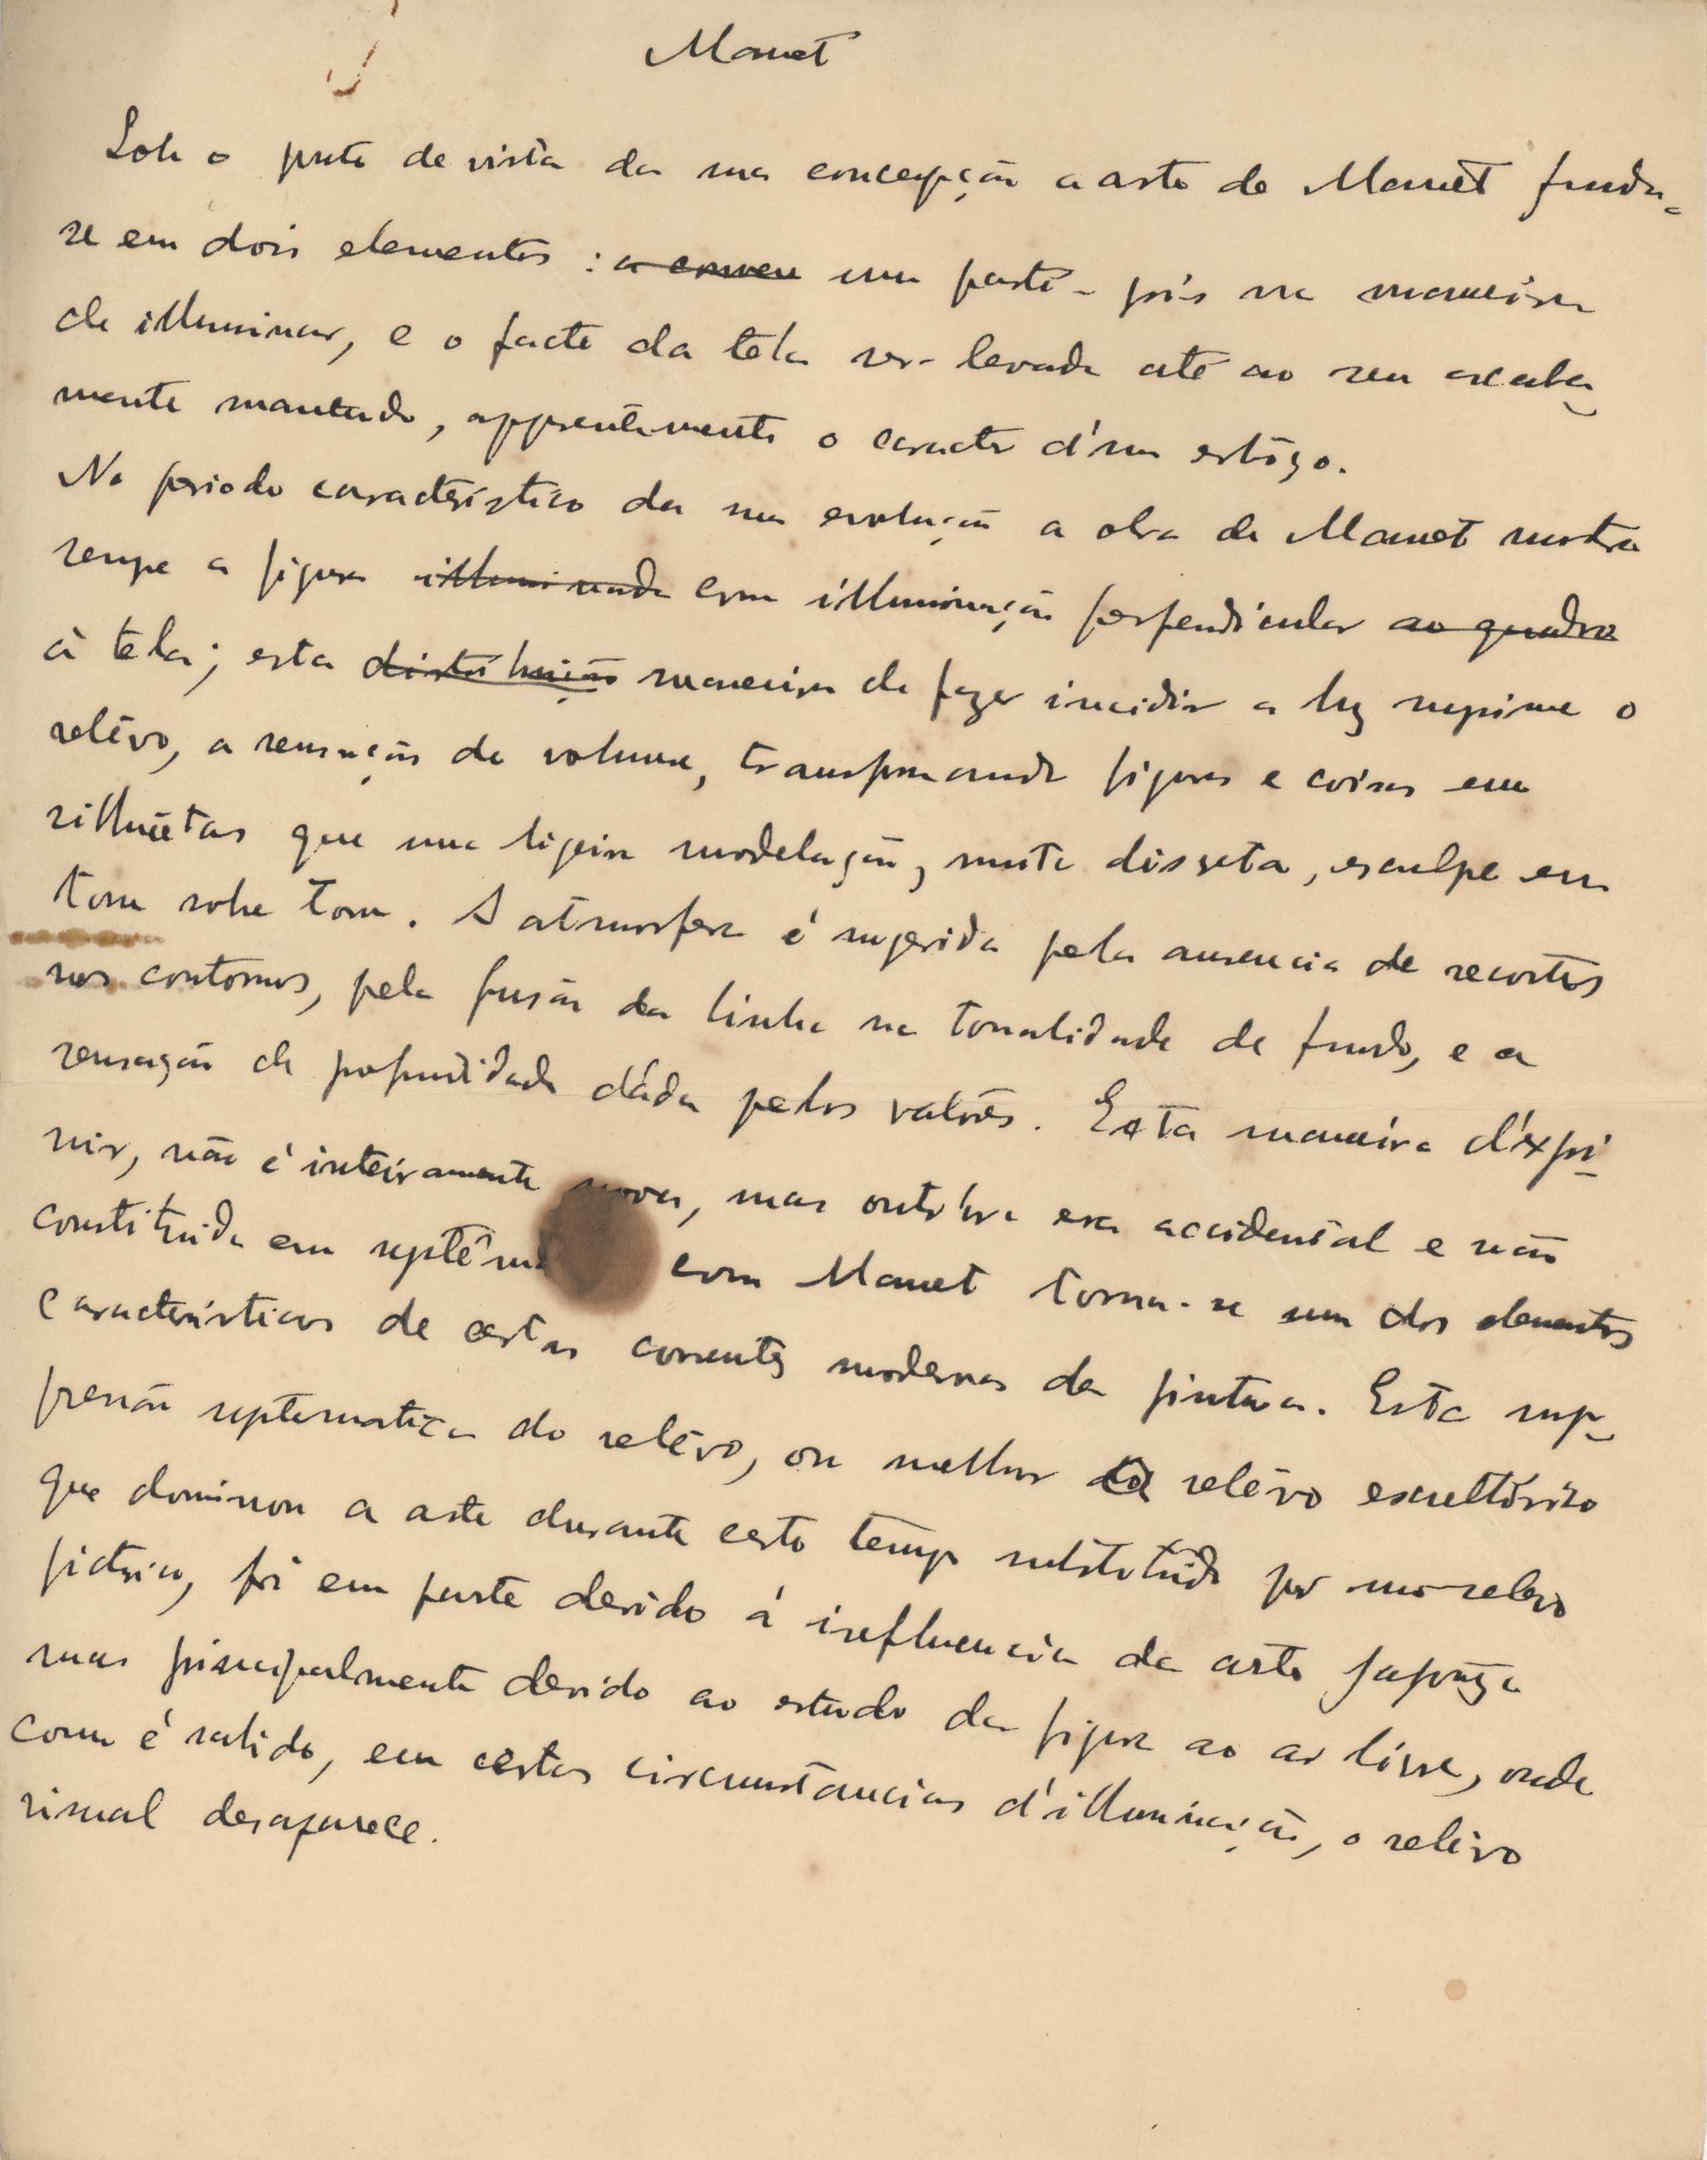 Manet
Sob o ponto de vista da sua concepção a arte de Manet funda-
se em dois elementos : a conven um parti-pris na maneira
de illuminar, e o facto da tela ser levada até ao seu acaba-
mento mantendo, apparentemente o caracter d'um esbôço.
No periodo característico da sua evolução a obra de Manet mostra
sempe a figura illuminada com illuminação perpendicular ao quadro
à tela; esta distribuição maneira de fazer incidir a luz suprime o
relêvo, a sensação de volume, transformando figuras e coisas em
silhuêtas que uma ligeira modelação, muito discreta, esculpe em
tom sobre tom. A atmosfera é sugerida pela ausencia de recortes
nos contornos, pela fusão da linha na tonalidade de fundo, e a
sensação de profundidade dáda pelos valôres. Esta maneira d'expri-
mir, não é inteiramente nova, mas outrora era accidental e não
constituida em systêma com Manet torna-se um dos elementos
caracteristicos de certas correntes modernas da pintura. Esta sup-
pressão systematica do relêvo, ou melhor do relêvo escultórico
que dominou a arte durante certo tempo substituído por um relevo
pictorico, foi em parte devido á influencia da arte japonêza
mas principalmente devido ao estudo da figura ao ar livre, onde
como é sabido, em certas circumstancias d'illuminação, o relêvo
visual desaparece.